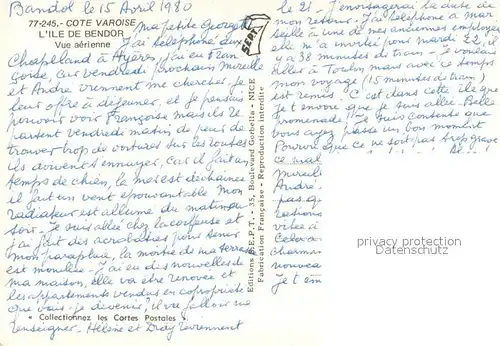 Bandol le 15 Avril 1980
77-245.- COTE VAROISE
L'ILE DE BENDOR
Vue aérienne
Ma petite Georgette
J'ai téléphoné aux
Chaplland à Hyères j'ai eu Fran
çoise, car vendredi prochain Mireille
et André viennent me chercher je
leur offre à déjeuner, et je pensais
pouvoir voir Françoise mais ils re
partent vendredi matin de peur de
trouver trop de voitures sur les routes
ils doivent s'ennuyer, car il fait un
temps de chien, la mer est déchainée
il fait un vent épouvantable mon
radiateur est allumé du matin au
soir - Je suis allée chez la coiffeuse et
j'ai fait des acrobaties pour tenir
mon parapluie, la moitié de ma terrasse
est mouillée - J'ai eu des nouvelles de
ma maison, elle va être rénovée et
les appartements vendus en copropriété
que vais-je devenir, il va falloir me
renseigner - Hélène et Dray reviennent
* Collectionnez les Cartes Postales *
SEPT
Editions S.E.P.T. - 35, Boulevard Gorbella - NICE
Fabrication Française - Reproduction interdite
le 21 - J'envisagerai la date de
mon retour - J'ai téléphoné à Mar
seille à une de mes anciennes employées
elle m'a invitée pour mardi 22, il
y a 38 minutes de train - Je voulais
aller à Toulon mais avec ce temps
mon voyage (15 minutes de train)
est remis - C'est dans cette île que
je t'envoie que je suis allée - Belle
promenade !!! Je suis contente que
vous ayez passé un bon moment
Pourvu que ce ne soit pas trop grave
ce mal
Mireille
André
pas que
visite à
Cela
charman
nouveau
je t'em
privacy protection
Datenschutz